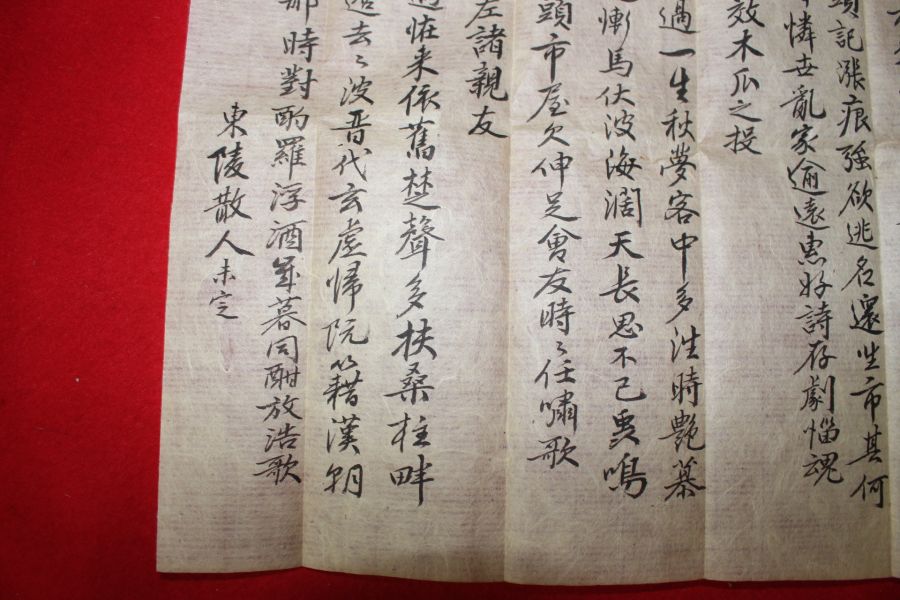 頭記漲痕強欲逃名還坐市其何
憐世亂家逾遠惠好詩存劇惱魂
效木瓜之投
過一生秋夢客中多法時艷慕
慚馬伏波海濶天長思不已 鳴
頭市屋欠伸足會友時〻任嘯歌
左諸親友
恠来依舊楚聲多扶桑柱畔
去〻波晋代玄虛歸阮籍漢朝
那時對酌羅浮酒 暮同酣放浩歌
東陵散人未定